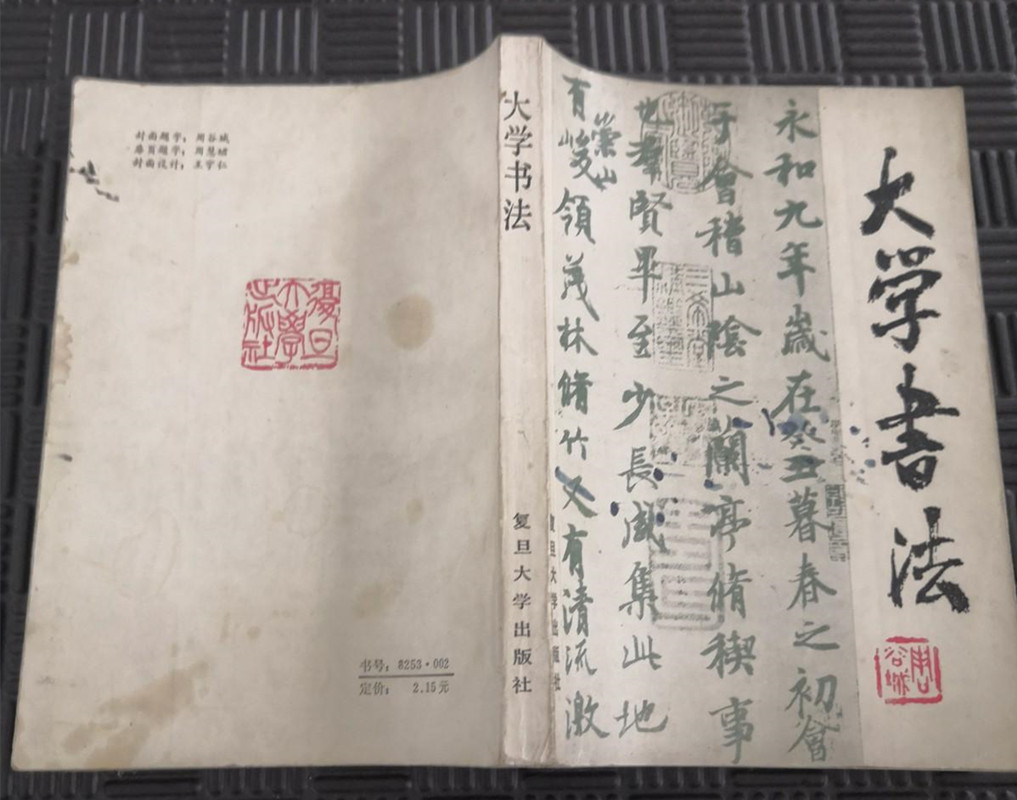 大学書法
周谷城
永和九年歲在癸丑暮春之初會
于會稽山陰之蘭亭脩稧事
也羣賢畢至少長咸集此地
有崇山峻領茂林脩竹又有清流激
大学书法
复旦大学出版社
复旦大学出版社
封面题字：周谷城
扉页题字：周慧珺
封面设计：王宇仁
復旦大學出版社
书号：8253·002
定价：2.15元